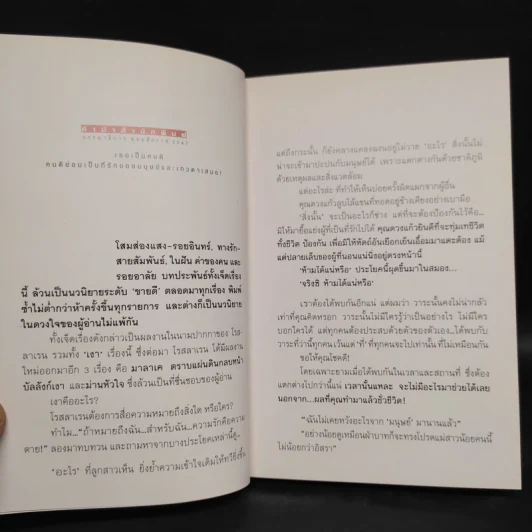 คำนำสำนักพิมพ์
เธอเป็นคนดี
คนดีย่อมเป็นที่รักของมนุษย์และเทวดาเสมอ!
โสมส่องแสง-รอยอินทร์, ทางรัก-
สายสัมพันธ์, ในฝัน ค่าของคน และ
รอยอาลัย บทประพันธ์ทั้งเจ็ดเรื่อง
นี้ ล้วนเป็นนวนิยายระดับ 'ขายดี' ตลอดมาทุกเรื่อง พิมพ์
ซ้ำไม่ต่ำกว่าห้าครั้งขึ้นทุกรายการ และต่างก็เป็นนวนิยาย
ในดวงใจของผู้อ่านไม่แพ้กัน
ทั้งเจ็ดเรื่องดังกล่าวเป็นผลงานในนามปากกาของ โรส
ลาเรน รวมทั้ง 'เงา' เรื่องนี้ ซึ่งต่อมา โรสลาเรน ได้มีผลงาน
ใหม่ออกมาอีก 3 เรื่อง คือ มาลาเค ตราบแผ่นดินกลบหน้า
บัลลังก์เงา และม่านหัวใจ ซึ่งล้วนเป็นที่ชื่นชอบของผู้อ่าน
เงาคืออะไร?
โรสลาเรนต้องการสื่อความหมายถึงสิ่งใด หรือใคร?
ทำไม..."ถ้าหมายถึงฉัน...สำหรับฉัน...ความรักคือความ
ตาย!" ลองมาทบทวน และถามหาจากบางประโยคเหล่านี้ดู...
'อะไร' ที่ลูกสาวเห็น ยิ่งย้ำความเข้าใจเดิมให้ทวียิ่งขึ้น
แต่ถึงกระนั้น ก็ยังคลางแคลงฉงนอยู่ไม่วาย 'อะไร' สิ่งนั้นไม่
น่าจะเข้ามาปะปนกับมนุษย์ได้ เพราะแตกต่างกันด้วยชาติภูมิ
ด้วยเหตุผลและสิ่งแวดล้อม
แต่อะไรล่ะ ที่ทำให้เห็นบ่อยครั้งผิดแผกจากผู้อื่น
คุณดวงแก้วลูบไล้แขนที่ทอดอยู่ข้างเคียงอย่างเบามือ
'สิ่งนั้น' จะเป็นอะไรก็ช่าง แต่ที่จะต้องป้องกันไว้ก็คือ...
มิให้มายื้อแย่งผู้ที่เป็นที่รักไปได้ คุณดวงแก้วยินดีที่จะทุ่มเทชีวิต
ทั้งชีวิต ป้องกัน เพื่อมิให้หัตถ์อันเยียกเย็นเอื้อมมาแตะต้อง แม้
แต่ปลายเล็บของผู้ที่นอนแน่นิ่งอยู่ตรงหน้านี้
'ห้ามได้แน่หรือ' ประโยคนี้ผุดขึ้นมาในสมอง...
'จริงซิ ห้ามได้แน่หรือ'
เราต้องได้พบกันอีกแน่ แต่ผมว่า วาระนั้นคงไม่น่ากลัว
เท่าที่คุณคิดหรอก วาระนั้นไม่มีใครรู้ว่าเป็นอย่างไร ไม่มีใคร
บอกใครได้ แต่ทุกคนต้องประสบด้วยตัวของตัวเอง...ได้พบกับ
วาระที่ว่านี้ทุกคน เว้นแต่ 'ที่' ที่ทุกคนจะไปเท่านั้น ที่ไม่เหมือนกัน
ขอให้คุณโชคดี!
โดยเฉพาะยามเมื่อได้พบกันในเวลาและสถานที่ ซึ่งต้อง
แตกต่างไปกว่านี้แน่ เวลานั้นแหละ จะไม่มีอะไรมาช่วยได้เลย
นอกจาก...ผลที่คุณทำมาแล้วชั่วชีวิต!
"ฉันไม่เคยหวังอะไรจาก 'มนุษย์' มานานแล้ว"
"อย่างน้อยดูเหมือนฝ่าบาทก็จะทรงโปรดแม่สาวน้อยคนนี้
ไม่น้อยกว่าอิสรา"